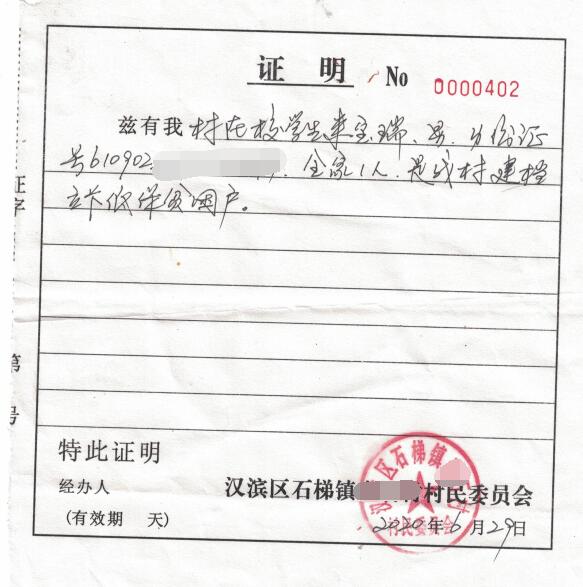 证 明 No 0000402
兹有我村在校学生来宝瑞、男、身份证
号610902 全家1人.是我村建档
立卡低保贫困户。
证字
第
号
特此证明
经办人
汉滨区石梯镇 村民委员会
(有效期 天)
2020年6月29日
汉滨区石梯镇 村
村民委员会